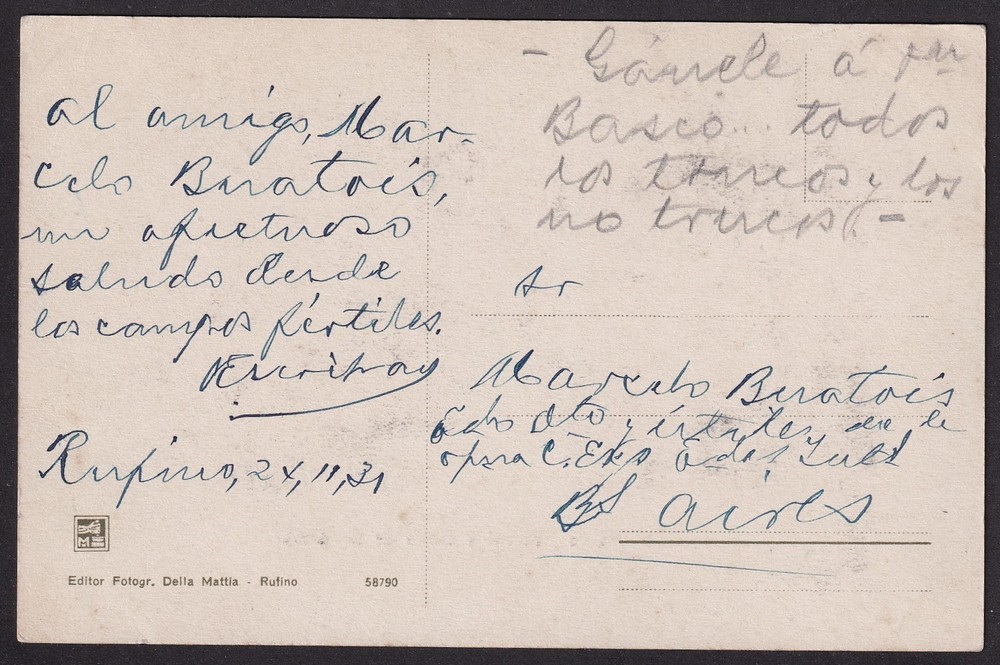 al amigo, Mar-
celo Buratois,
un afectuoso
saludo desde
los campos fértiles.
Rufino, 24, 11, 31
Editor Fotogr. Della Mattia - Rufino 58790
- Gánele á
Basco... todos
los trucos y los
no trucos. -
Sr
Marcelo Buratois
Bs Aires